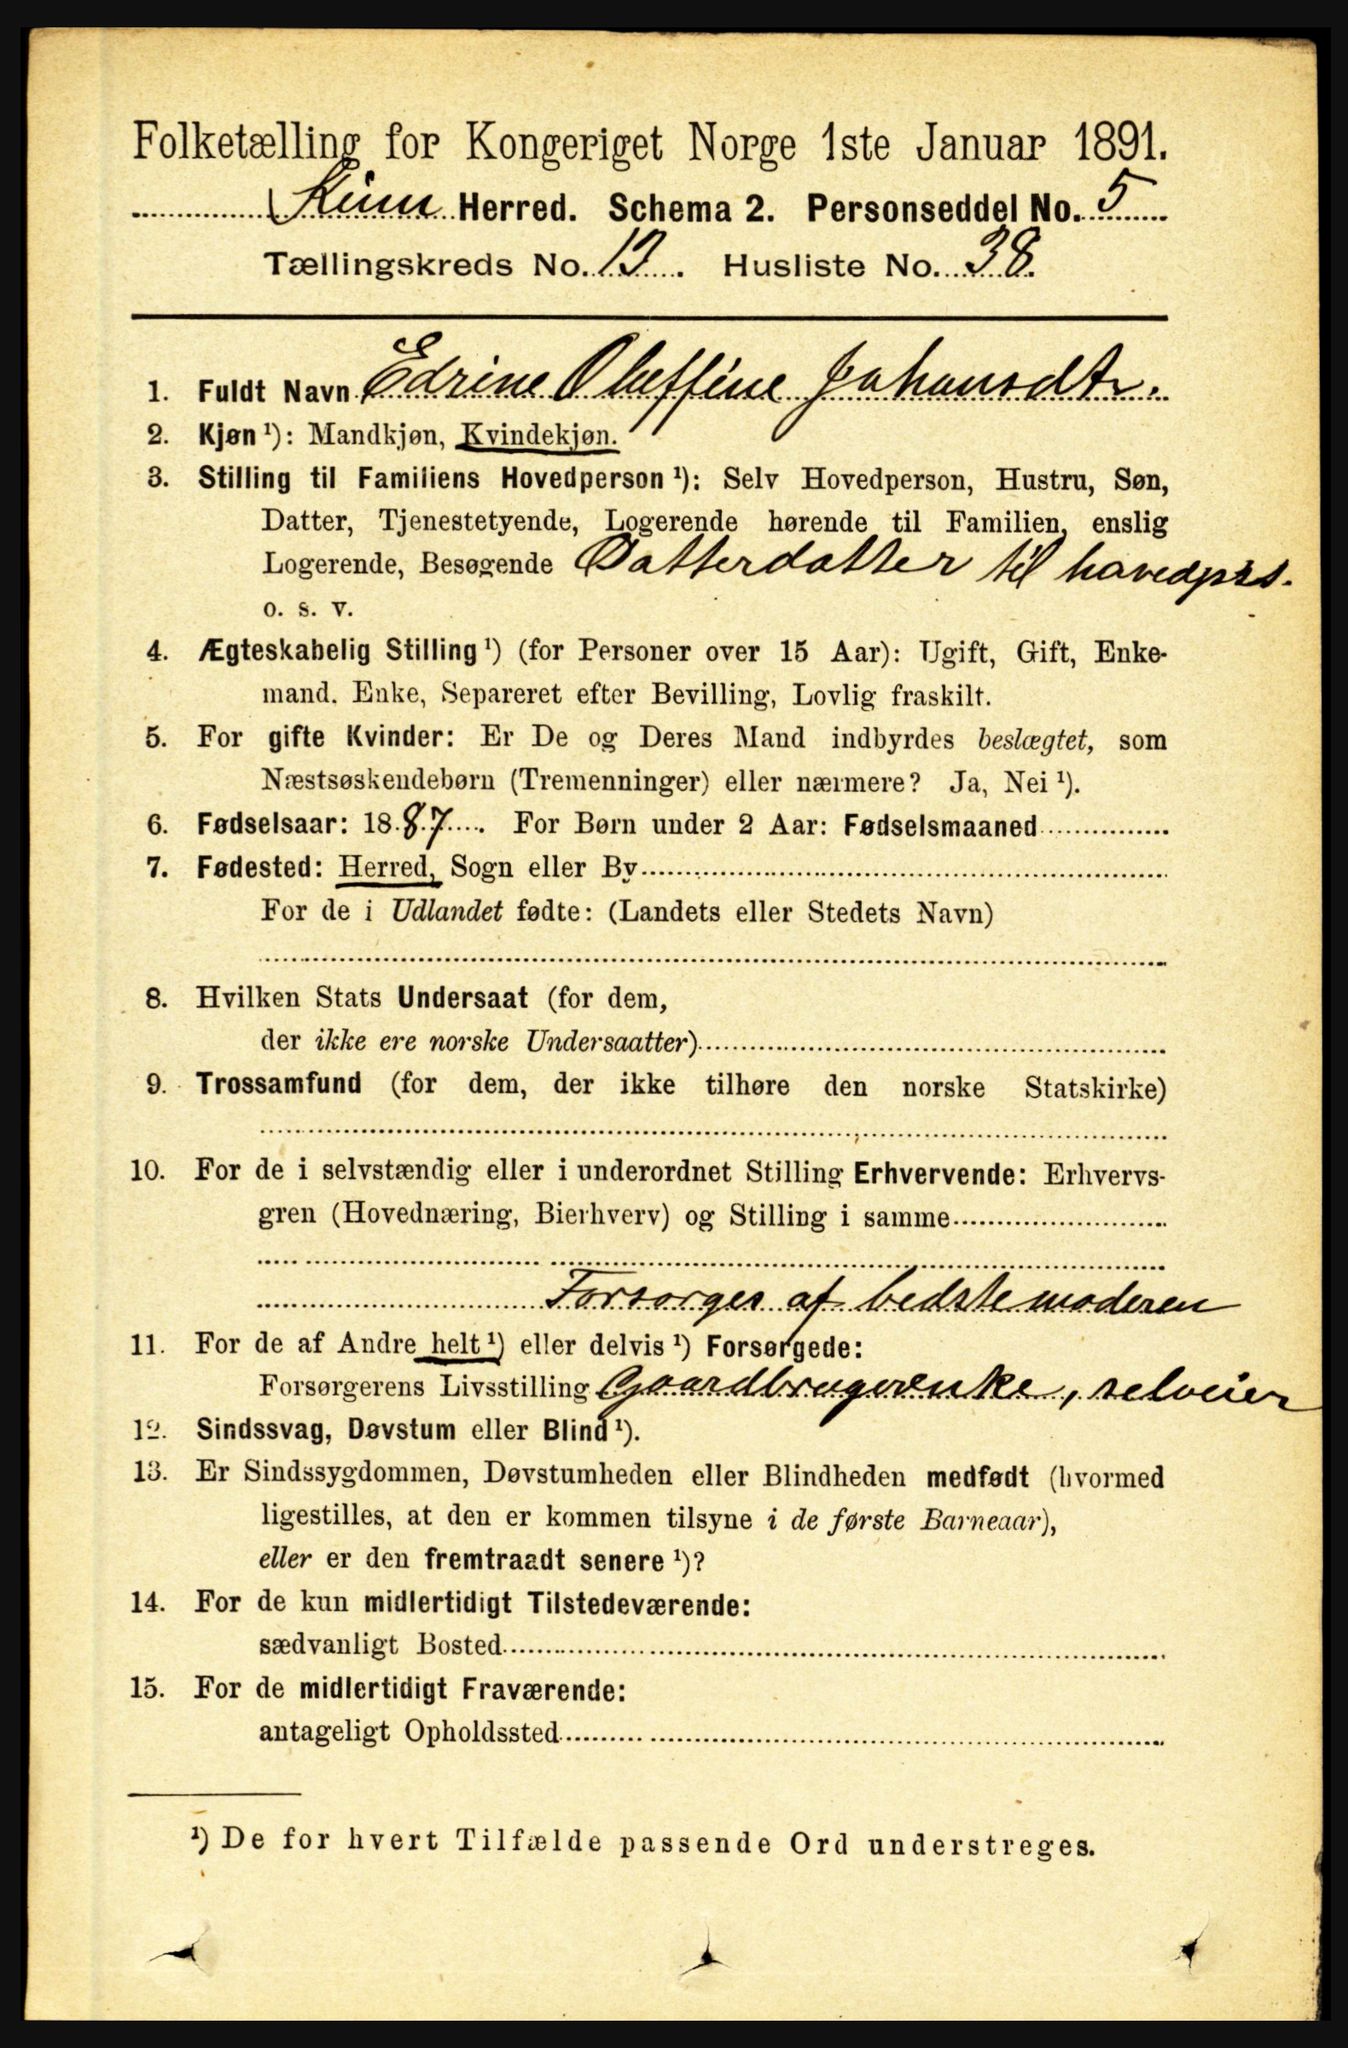 Folketælling for Kongeriget Norge 1ste Januar 1891.
Kinn Herred. Schema 2. Personseddel No. 5
Tællingskreds No. 13. Husliste No. 38.
1. Fuldt Navn Edrine Oleffine Johansdtr.
2. Kjøn ¹): Mandkjøn, Kvindekjøn.
3. Stilling til Familiens Hovedperson ¹): Selv Hovedperson, Hustru, Søn,
Datter, Tjenestetyende, Logerende hørende til Familien, enslig
Logerende, Besøgende Datterdatter til hovedprs.
o. s. v.
4. Ægteskabelig Stilling ¹) (for Personer over 15 Aar): Ugift, Gift, Enke-
mand. Enke, Separeret efter Bevilling, Lovlig fraskilt.
5. For gifte Kvinder: Er De og Deres Mand indbyrdes beslægtet, som
Næstsøskendebørn (Tremenninger) eller nærmere? Ja, Nei ¹).
6. Fødselsaar: 1887. For Børn under 2 Aar: Fødselsmaaned
7. Fødested: Herred, Sogn eller By
For de i Udlandet fødte: (Landets eller Stedets Navn)
8. Hvilken Stats Undersaat (for dem,
der ikke ere norske Undersaatter)
9. Trossamfund (for dem, der ikke tilhøre den norske Statskirke)
10. For de i selvstændig eller i underordnet Stilling Erhvervende: Erhvervs-
gren (Hovednæring, Bierhverv) og Stilling i samme
Forsorges af bedstemoderen
11. For de af Andre helt ¹) eller delvis ¹) Forsørgede:
Forsørgerens Livsstilling Gaardbrugerenke, selveier
12. Sindssvag, Døvstum eller Blind ¹).
13. Er Sindssygdommen, Døvstumheden eller Blindheden medfødt (hvormed
ligestilles, at den er kommen tilsyne i de første Barneaar),
eller er den fremtraadt senere ¹)?
14. For de kun midlertidigt Tilstedeværende:
sædvanligt Bosted
15. For de midlertidigt Fraværende:
antageligt Opholdssted
¹) De for hvert Tilfælde passende Ord understreges.